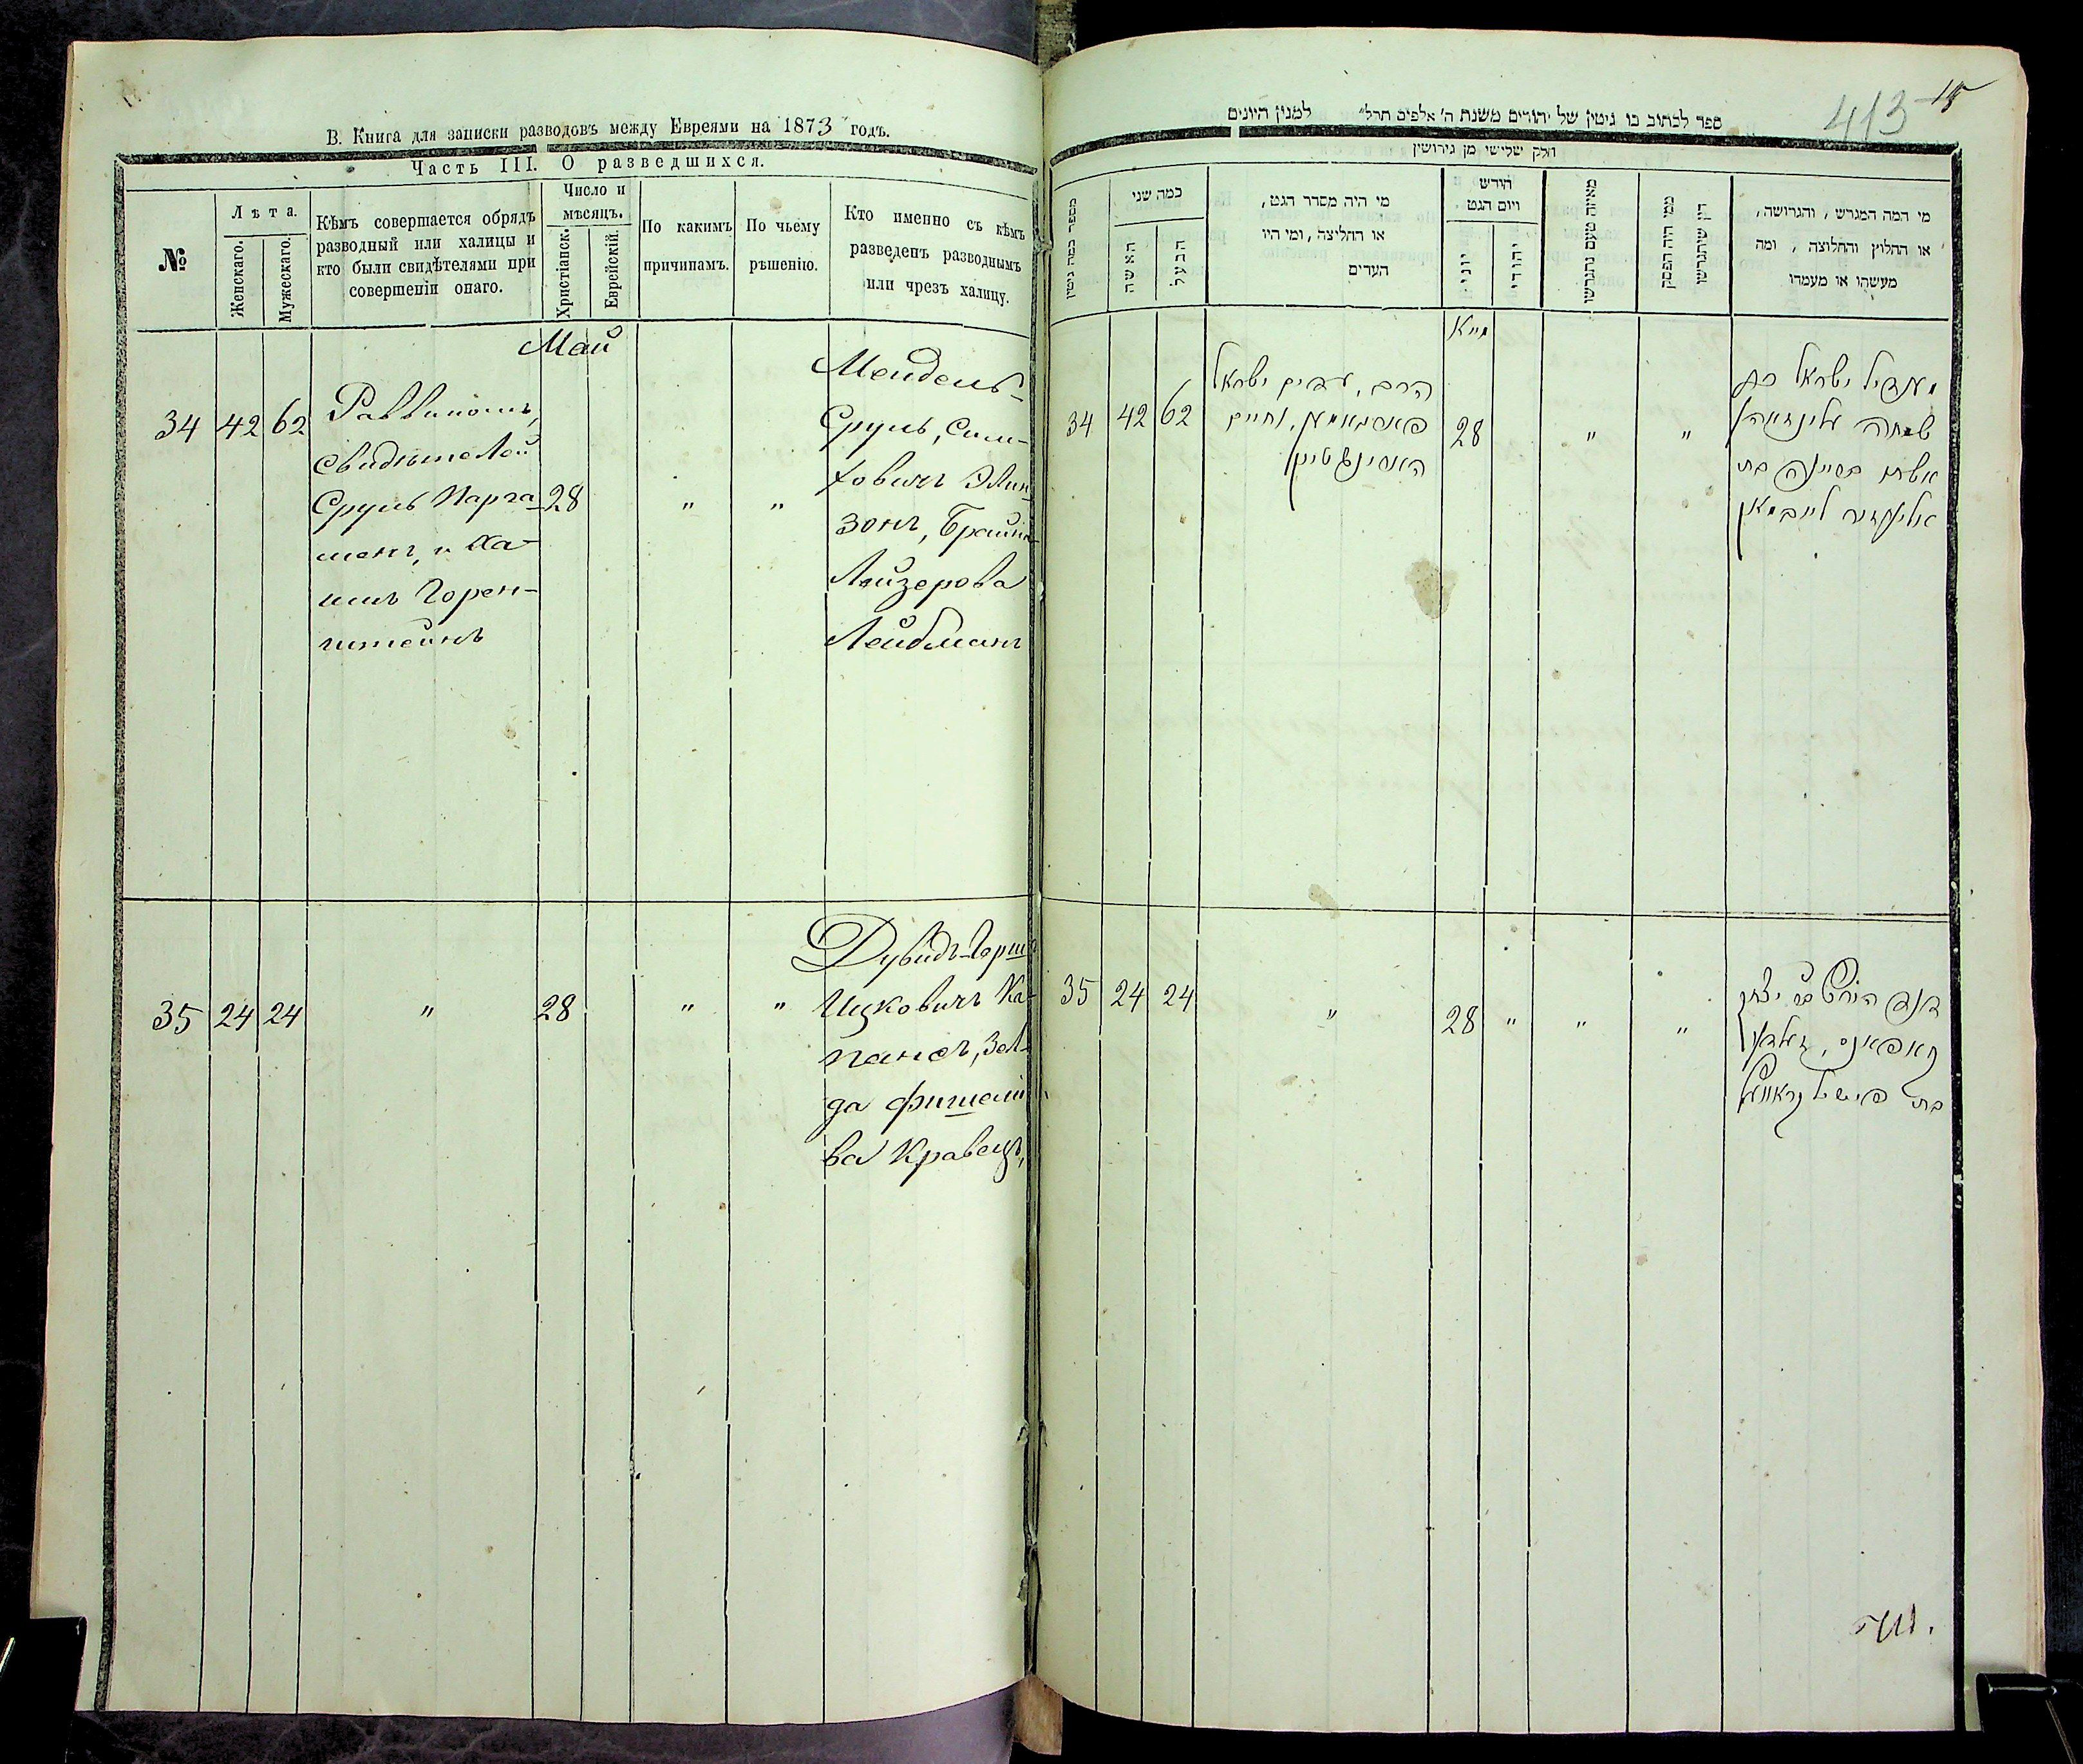 В. Книга для записки разводовъ между Евреями на 1873 годъ.
Часть III. О разведшихся.
№
Лѣта.
Женскаго.
Мужескаго.
Кѣмъ совершается обрядъ
разводный или халицы и
кто были свидѣтелями при
совершеніи онаго.
Число и
мѣсяцъ.
Христіанск.
Еврейскій.
По какимъ
причинамъ.
По чьему
рѣшенію.
Кто именно съ кѣмъ
разведенъ разводнымъ
или чрезъ халицу.
Май
34 42 62
Раввиномъ,
свидѣтелей
Сруль Парга-
менъ, и Ха-
имъ Горен-
штейнъ
28 " "
Мендель-
Сруль, Сим-
ховичъ Элин-
зонъ, Брайна
Лейзерова
Лейбманъ
35 24 24 " 28 " "
Дувидъ-Герш
Ицковичъ Ка-
пансъ, Зел-
да Фишеліо-
ва Кравецъ,
413 15
ספר לכתוב בו גיטין של יהודים משנת ה' אלפים תרל" למנין היונים
חלק שלישי מן גירושין
מספר כמה גיטין
כמה שני
האשה
הבעל
מי היה מסדר הגט,
או החליצה, ומי היו
העדים
חודש
ויום הגט.
יוני
יהודי
מאיזה טעם נתגרשו
ממי היה הפסק
דין שיתגרשו
מי המה המגרש, והגרושה,
או החלוץ והחלוצה, ומה
מעשהו או מעמדו
מייא
34 42 62
הרב, עדים ישראל
וחיים
28 " "
מענדיל ישראל בן
שמחה עלינזאהן
בריינה בת
אליעזר לייבמאן
35 24 24 " 28 " " "
דוד הירש בר יצחק
קאפאנס, זעלדא
בת פישיל קראוועץ